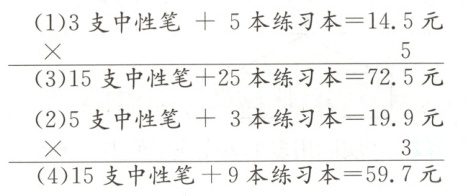 (1)3支中性笔 + 5本练习本=14.5元
× 5
(3)15支中性笔+25本练习本=72.5元
(2)5支中性笔 + 3本练习本=19.9元
× 3
(4)15支中性笔+9本练习本=59.7元